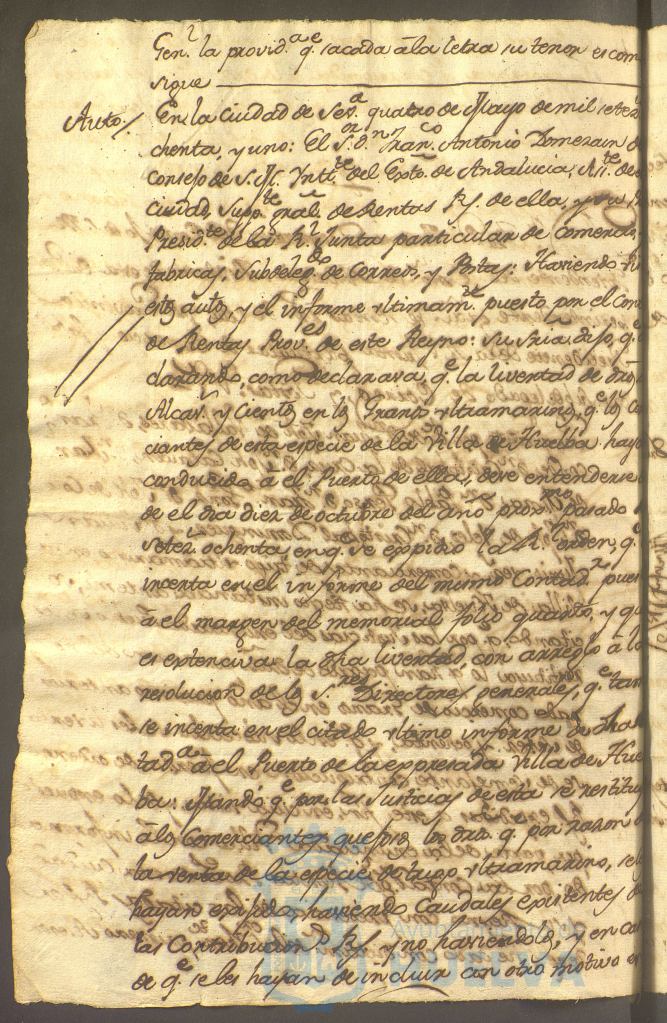 Gen.l la provid.a q.e sacada â la letra su tenor es com
sigue
Auto./ En la Ciudad de Sev.a quatro de Mayo de mil setez
chenta, y uno: El S.or D.n Fran.co Antonio Domezain d
Consejo de S. M. Ynt.te del Exto. de Andalucia, As.te de
Ciudad, Sup.te gral. de Rentas R.s de ella, y su
Presid.te de la R.l Junta particular de Comercio
fabricas, Subdeleg.do de Correos, y Postas: Haviendo
estos autos, y el informe ultimam.te puesto por el Con
de Rentas Prov.es de este Reyno: su Sria. dijo, q.e
clarando, como declarava, q.e la livertad de dros
Alcav.s y Cientos en los Granos ultramarinos, q.e los Co
ciantes de esta especie de la Villa de Huelba hay
conducido â el Puerto de ella, deve entenderse
de el dia diez de octubre del año prox.mo pasado
setez.s ochenta, en q.e se expidio la R.l orden, q.e
incerta en el informe del mismo Contad.r pues
â el margen del memorial folio quarto, y qu
es extenciva la dha livertad, con arreglo â la
resolucion de los S.res Directores generales, q.e tam
se incerta en el citado ultimo informe de dha
tad.a â el Puerto de la expresada Villa de Hue
ba: Mandó q.e por las Justicias de esta se restituy
â los Comerciantes quejosos los dros. q. por razon
la venta de la especie de trigo ultramarino, se
hayan exijido, haviendo Caudales existentes d
tas Contribucion.s R.s y no haviendolos, y en ca
de q.e se les hayan de incluir con otro motivo e
Ayuntamiento de
HUELVA